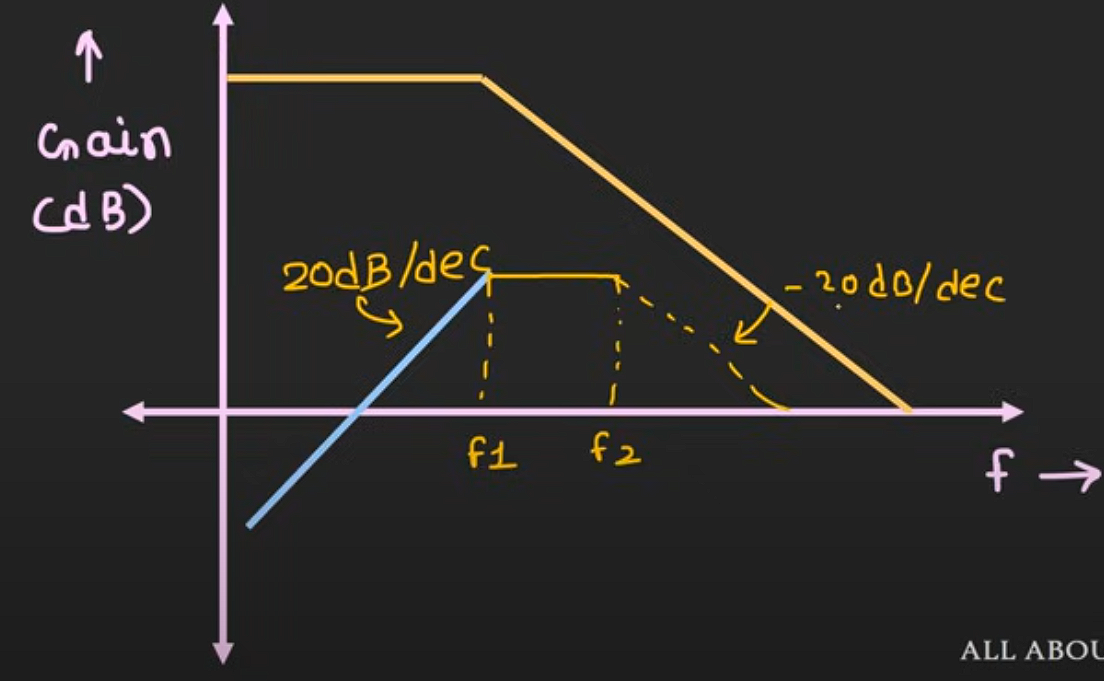 Gain
(dB)
20dB/dec
-20dB/dec
f1
f2
f
ALL ABOU